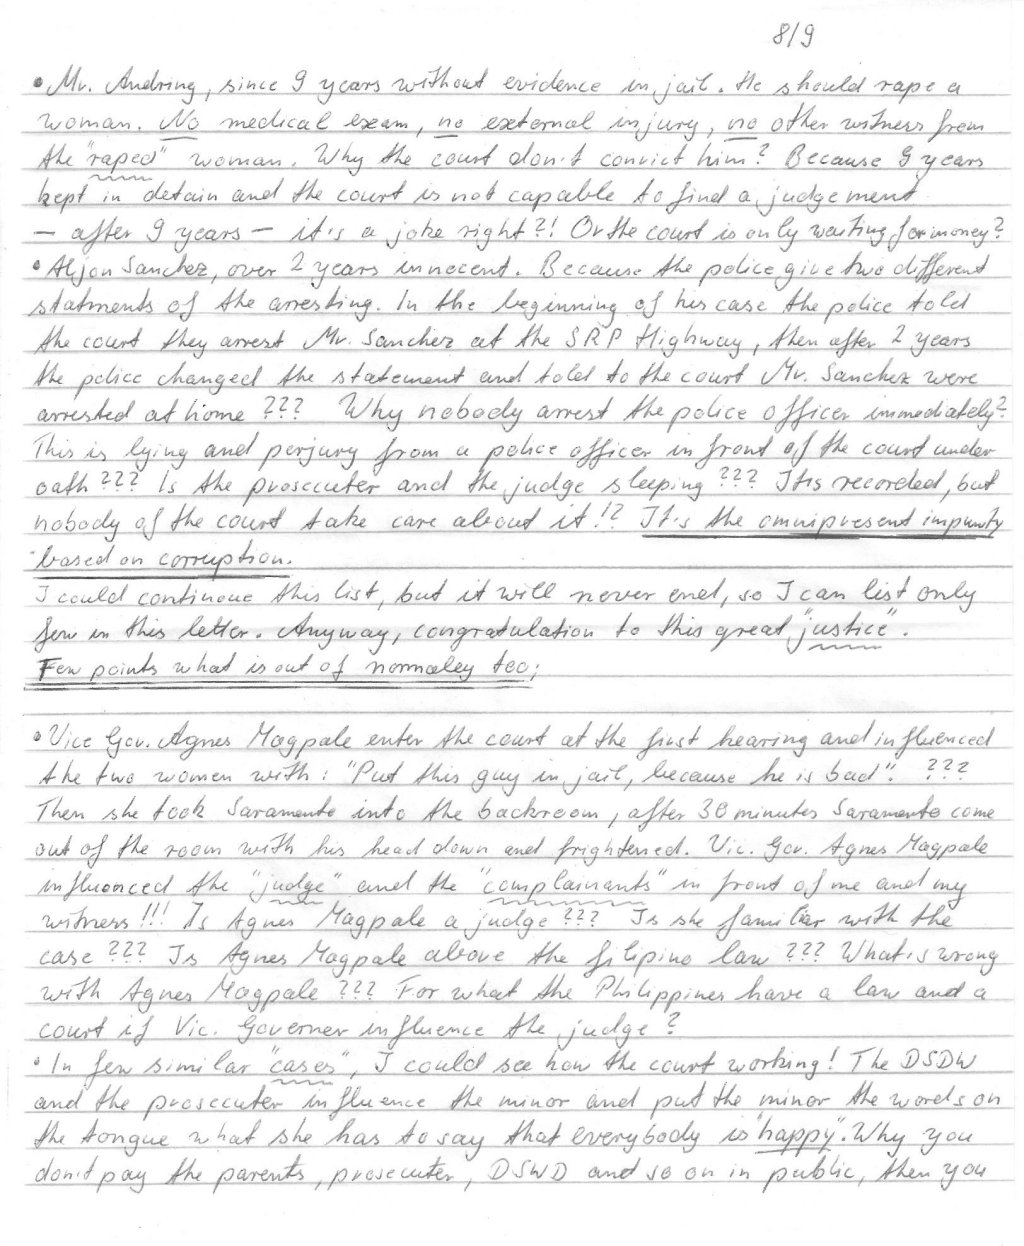 8/9
• Mr. Andring, since 9 years without evidence in jail. He should rape a
woman. No medical exam, no external injury, no other witness from
the "raped" woman. Why the court don't convict him? Because 9 years
kept in detain and the court is not capable to find a judgement
– after 9 years – it's a joke right?! Or the court is only waiting for money?
• Aljon Sanchez, over 2 years innocent. Because the police give two different
statments of the arresting. In the beginning of his case the police told
the court they arrest Mr. Sanchez at the SRP Highway, then after 2 years
the police changed the statement and told to the court Mr. Sanchez were
arrested at home??? Why nobody arrest the police officer immediately?
This is lying and perjury from a police officer in front of the court under
oath??? Is the prosecuter and the judge sleeping??? It's recorded, but
nobody of the court take care about it!? It's the omnipresent impunity
based on corruption.
I could continoue this list, but it will never end, so I can list only
few in this letter. Anyway, congratulation to this great "justice".
Few points what is out of normaley too;
• Vice Gov. Agnes Magpale enter the court at the first hearing and influenced
the two women with: "Put this guy in jail, because he is bad". ???
Then she took Saramento into the backroom, after 30 minutes Saramento come
out of the room with his head down and frightened. Vic. Gov. Agnes Magpale
influenced the "judge" and the "complainants" in front of me and my
witness!!! Is Agnes Magpale a judge??? Is she familiar with the
case??? Is Agnes Magpale above the filipino law??? What is wrong
with Agnes Magpale??? For what the Philippines have a law and a
court if Vic. Governer influence the judge?
• In few similar "cases", I could see how the court working! The DSDW
and the prosecuter influence the minor and put the minor the words on
the tongue what she has to say that everybody is "happy". Why you
don't pay the parents, prosecuter, DSWD and so on in public, then you